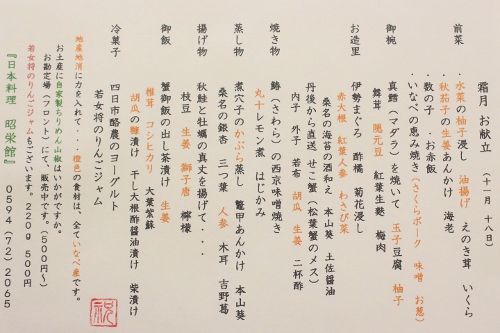 霜月 お献立 (十一月 十八日)
前菜 ・水菜の柚子浸し 油揚げ えのき茸 いくら
・秋茄子の生姜あんかけ 海老
・数の子 ・お赤飯
・いなべの恵み焼き(さくらポーク 味噌 お葱)
御椀 真鱈(マダラ)を焼いて 玉子豆腐 柚子
舞茸 隠元豆 紅葉生麩 梅肉
お造里 伊勢まぐろ 酢橘 菊花浸し
赤大根 紅葉人参 わさび菜
桑名の海苔の酒和え 本山葵 土佐醤油
丹後から直送 せこ蟹(松葉蟹のメス)
内子 外子 若布 胡瓜 生姜 二杯酢
焼き物 鰆(さわら)の西京味噌焼き
丸十レモン煮 はじかみ
蒸し物 煮穴子のかぶら蒸し 鼈甲あんかけ 本山葵
桑名の銀杏 三つ葉 人参 木耳 吉野葛
揚げ物 秋鮭と牡蠣の真丈を揚げて・・・
枝豆 生姜 獅子唐 檸檬
御飯 蟹御飯の出し茶漬け 生姜
椎茸 コシヒカリ 大葉紫蘇
胡瓜の糠漬け 干し大根酢醤油漬け 柴漬け
冷菓子 四日市酪農のヨーグルト
若女将のりんごジャム
地産地消に力を入れて・・・橙色の食材は、全ていなべ産です。
お土産に自家製ちりめん山椒はいかがですか。
お勘定場(フロント)にて、販売中です。(500円〜)
若女将のりんごジャムもございます。220g 500円
『日本料理 昭栄館』 0594(72)2065